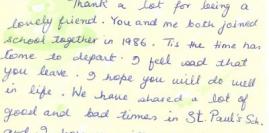 Thank a lot for being a
lovely friend. You and me both joined
school together in 1986. Tis the time has
come to depart. I feel sad that
you leave. I hope you will do well
in life. We have shared a lot of
good and bad times in St. Paul's Sch.
and I